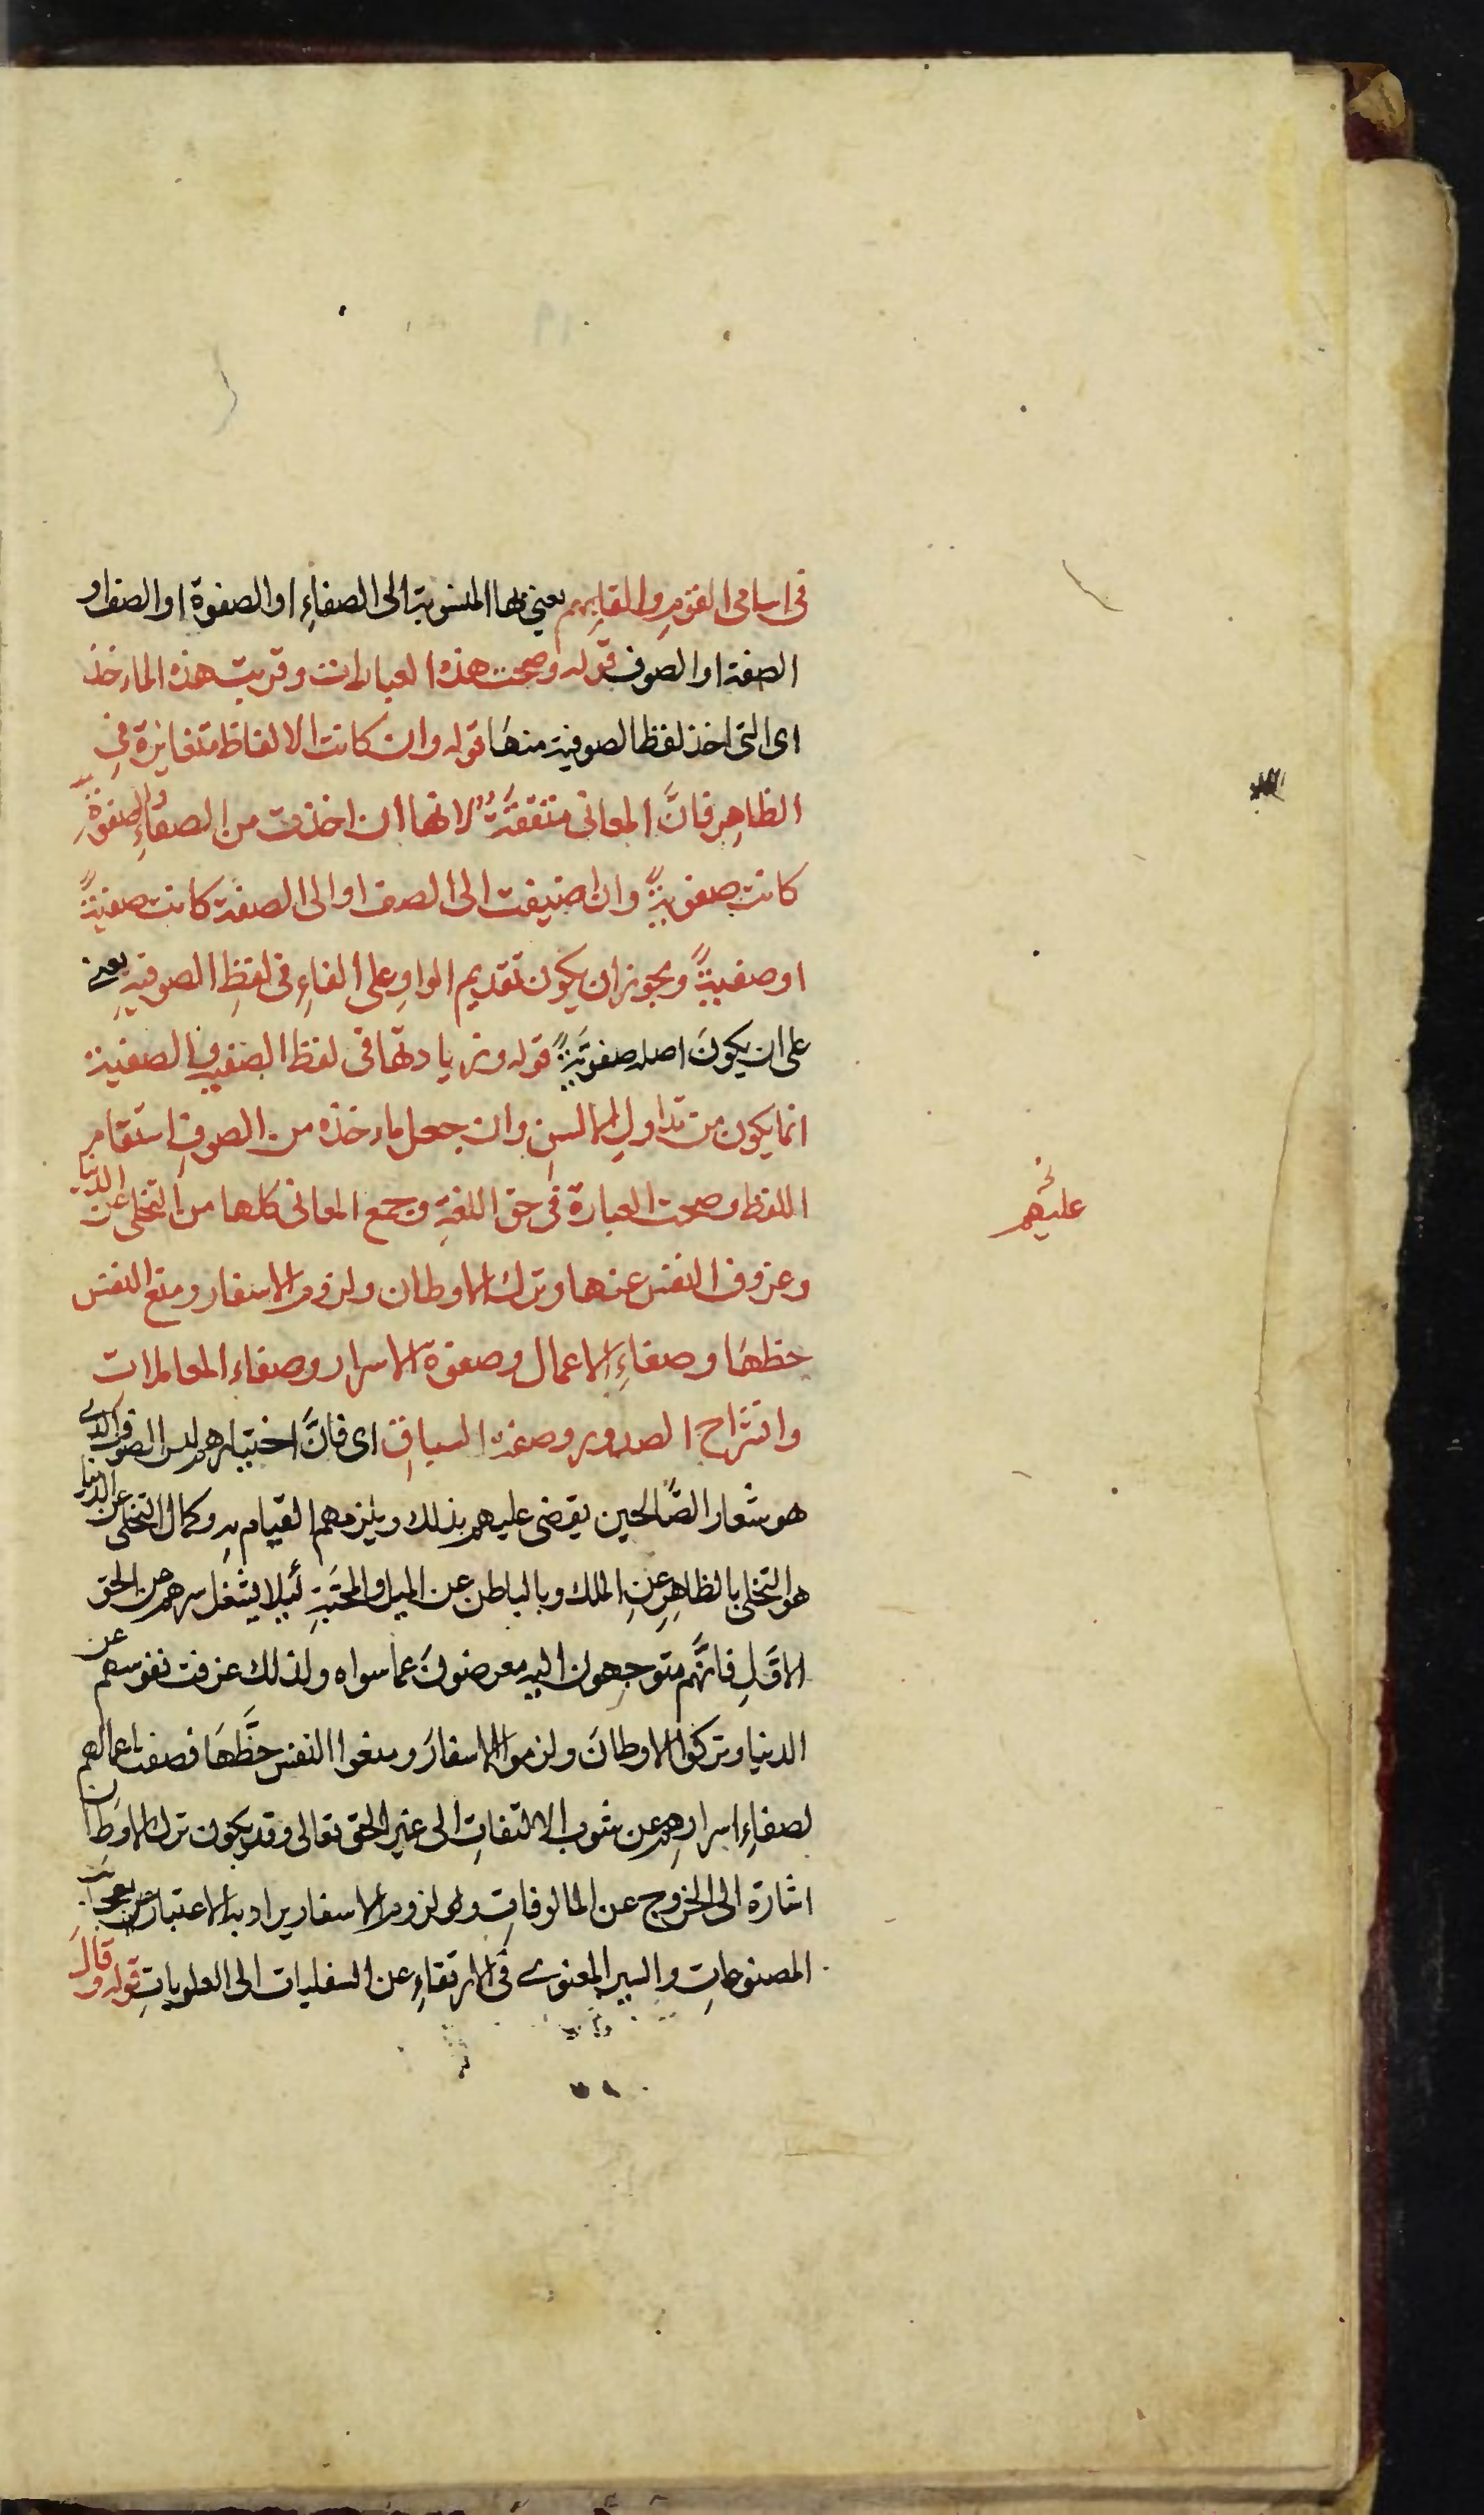 فى اسامى القوم والقابهم يعنى بها المنسوبة الى الصفاءِ او الصفوة او الصف او
الصفة او الصوف قوله وصحت هذه العبارات وقربت هذه الماءخذ
اى التى اخذ لفظ الصوفية منها قوله وان كانت الالفاظ متغايرة فى
الظاهِر فانَّ المعانى متفقةٌ لانها ان اخذت من الصفاءِ والصفوةِ
كانت صفويةً وان اضيفت الى الصف او الى الصفة كانت صفيةً
او صفيةً ويجوز ان يكون تقديم الواوِ على الفاءِ فى لفظِ الصوفيةِ يعنى
على ان يكونَ اصله صفويَّةً قوله وزيادتها فى لفظ الصفية والصفية
انما يكون من تداولِ الالسنِ وان جعل ماءخذه من الصوفِ استقام
اللفظ وصحت العبارة فى حق اللغةِ وجمع المعانى كلها من التخلى عن الدنيا
وعزوف النفس عنها وترك الاوطان ولزوم الاسفار ومنع النفس
حظها وصفاءِ الاعمال وصفوة الاسرار وصفاء المعاملات
وانشراح الصدور وصفة السباقِ اى فانَّ اختيارهم لبس الصوف الذى
هو شعار الصَّالحين يقضى عليهم بذلك ويلزمهم القيام بهِ وكمال التخلى عن الدنيا
هو التخلى بالظاهِر عنِ الملك وبالباطن عن الميل والمحبَّةِ لئلا يشغل سرهم عن الحق
الاوَّلِ فانَّهم متوجهون اليه معرضونَ عما سواه ولذلك عزفت نفوسهم عن
الدنيا وتركوا الاوطانَ ولزموا الاسفارَ ومنعوا النفس حظَّهَا فصفت اعمالهم
لصفاءِ اسرارهِم عن شوب الالتفاتِ الى غير الحق تعالى وقد يكون ترك الاوطان
اشارة الى الخروج عن المالوفاتِ ولزوم الاسفار يراد به الاعتبار
المصنوعاتِ والسير المعنوى فى الارتقاءِ عن السفليات الى العلوياتِ قوله وقالَ
عليهم